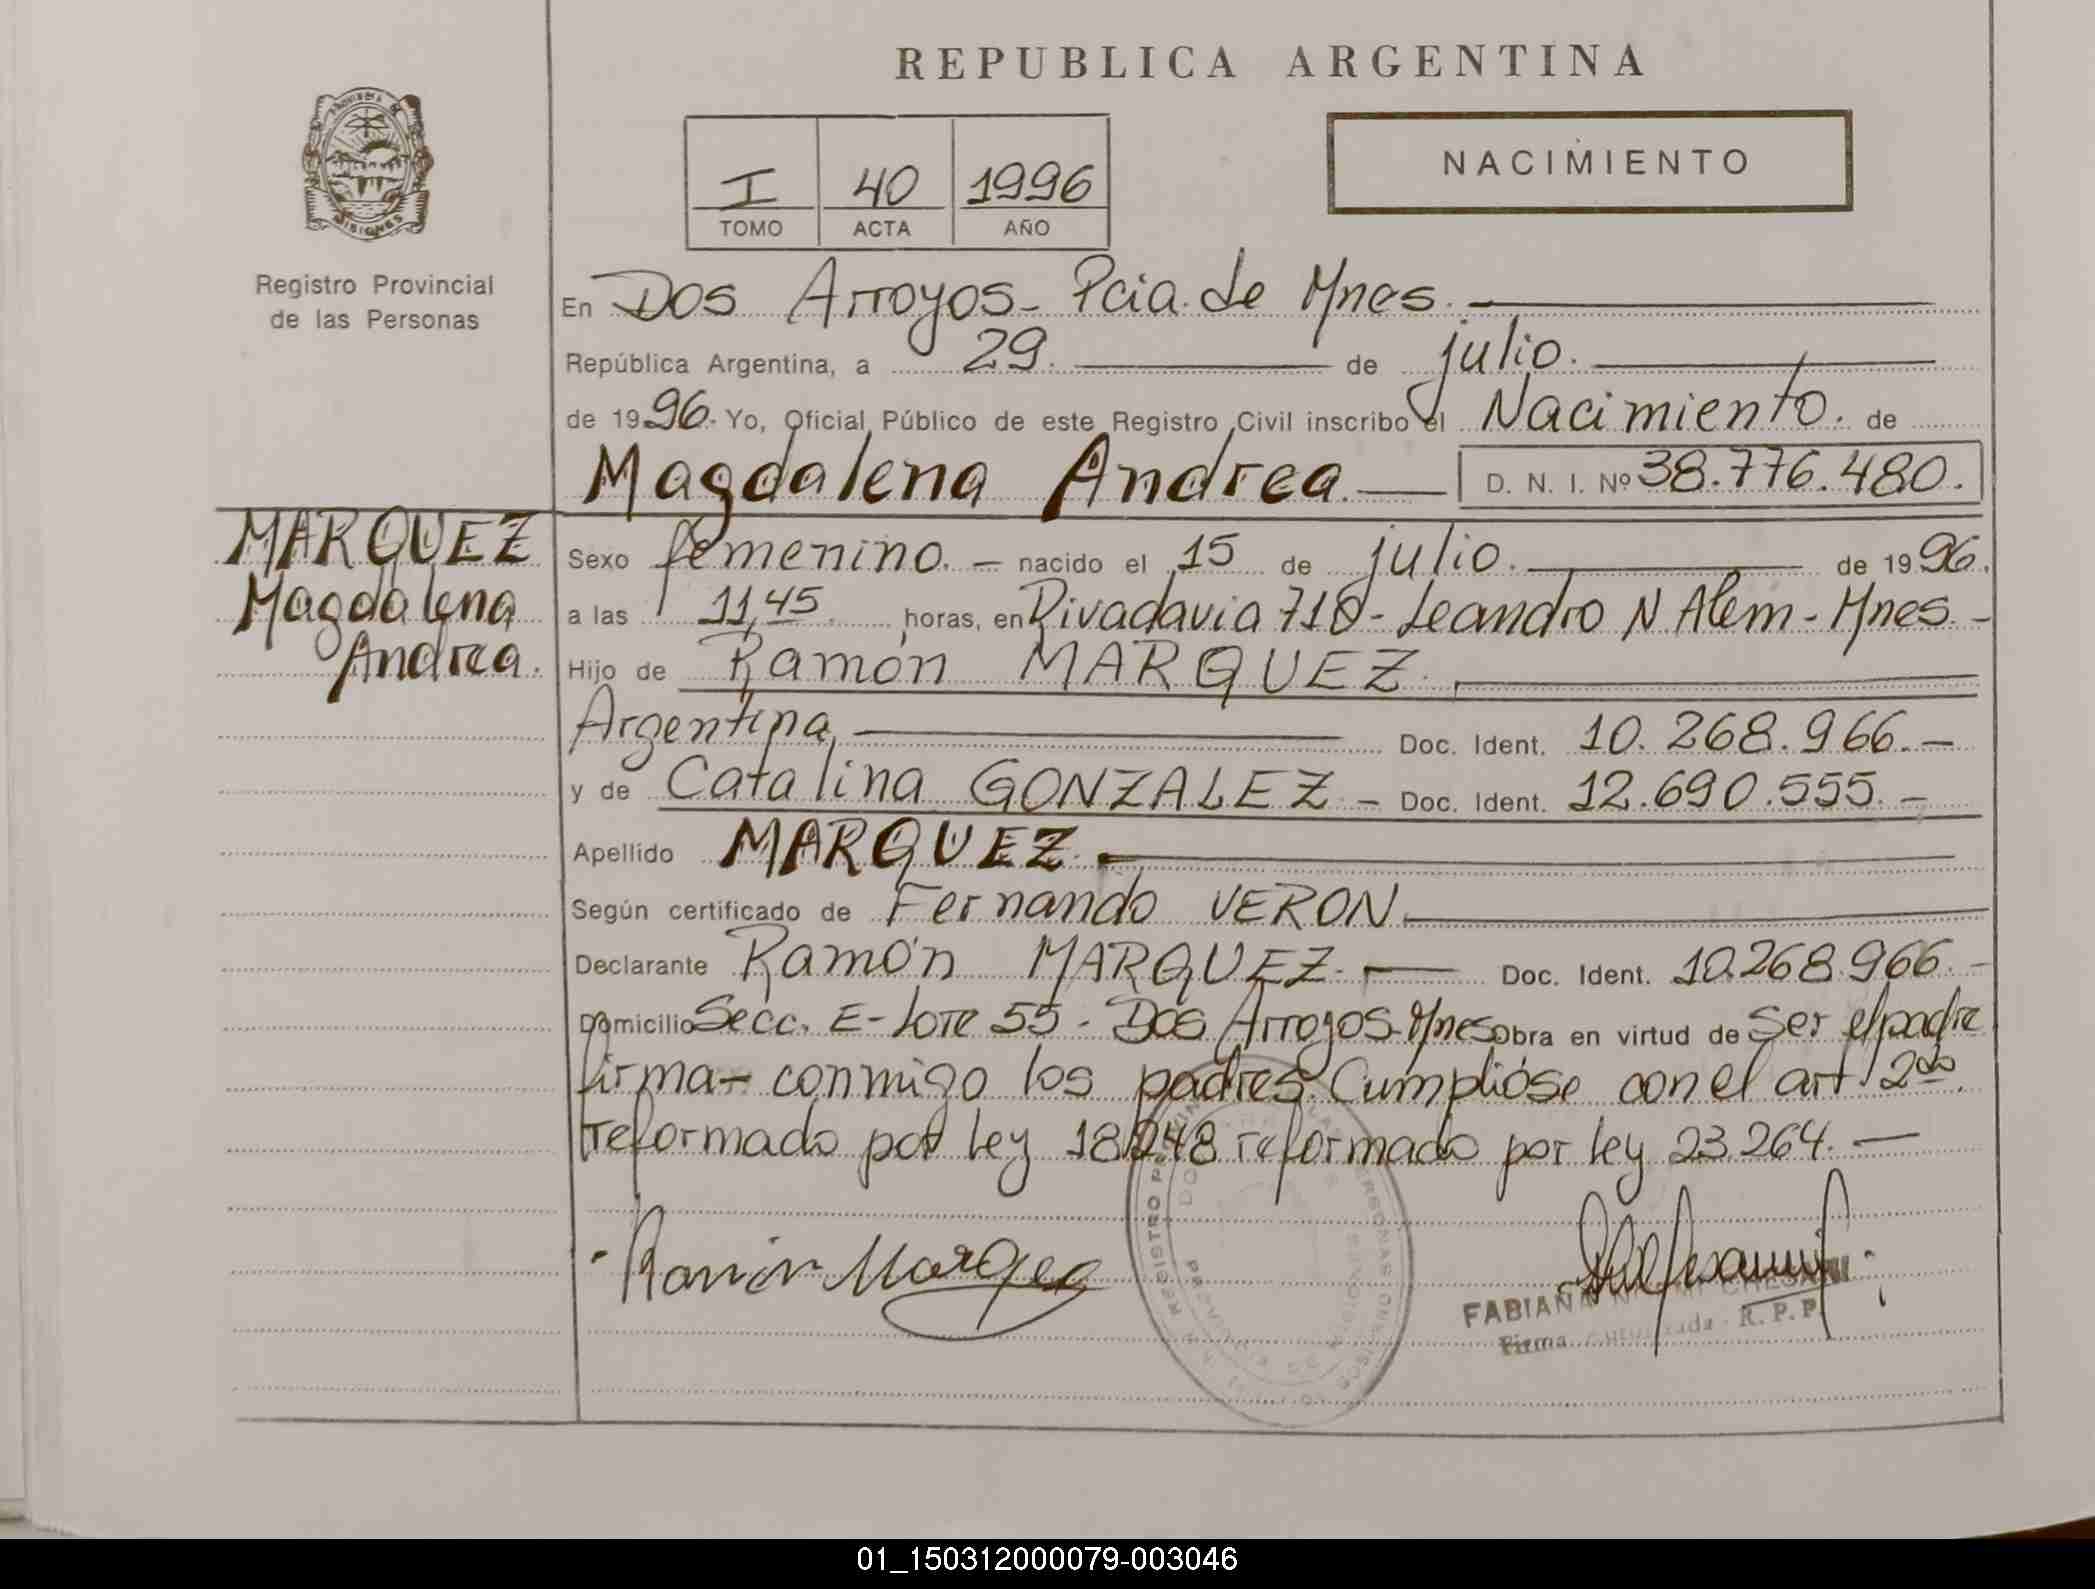 REPUBLICA ARGENTINA
PROVINCIA DE
MISIONES
Registro Provincial
de las Personas
I 40 1996
TOMO ACTA AÑO
NACIMIENTO
En Dos Arroyos- Pcia. de Mnes.
República Argentina, a 29. de julio.
de 1996. Yo, Oficial Público de este Registro Civil inscribo el Nacimiento. de
Magdalena Andrea. D. N. I. Nº 38.776.480.
MARQUEZ
Magdalena
Andrea.
Sexo femenino. nacido el 15 de julio. de 1996.
a las 11,45 horas, en Rivadavia 710- Leandro N Alem- Mnes.-
Hijo de Ramón MARQUEZ.
Argentina, Doc. Ident. 10.268.966.-
y de Catalina GONZALEZ - Doc. Ident. 12.690.555.-
Apellido MARQUEZ.
Según certificado de Fernando VERON.
Declarante Ramón MARQUEZ. Doc. Ident. 10.268.966.-
Domicilio Secc. E- Lote 55- Dos Arroyos- Mnes obra en virtud de ser el padre
firma- conmigo los padres. Cumplióse con el art. 2do.
reformado por Ley 18.248 reformado por ley 23.264.-
Ramón Marquez
FABIANA
Firma R. P. P.
REGISTRO PERSONAS
01_150312000079-003046